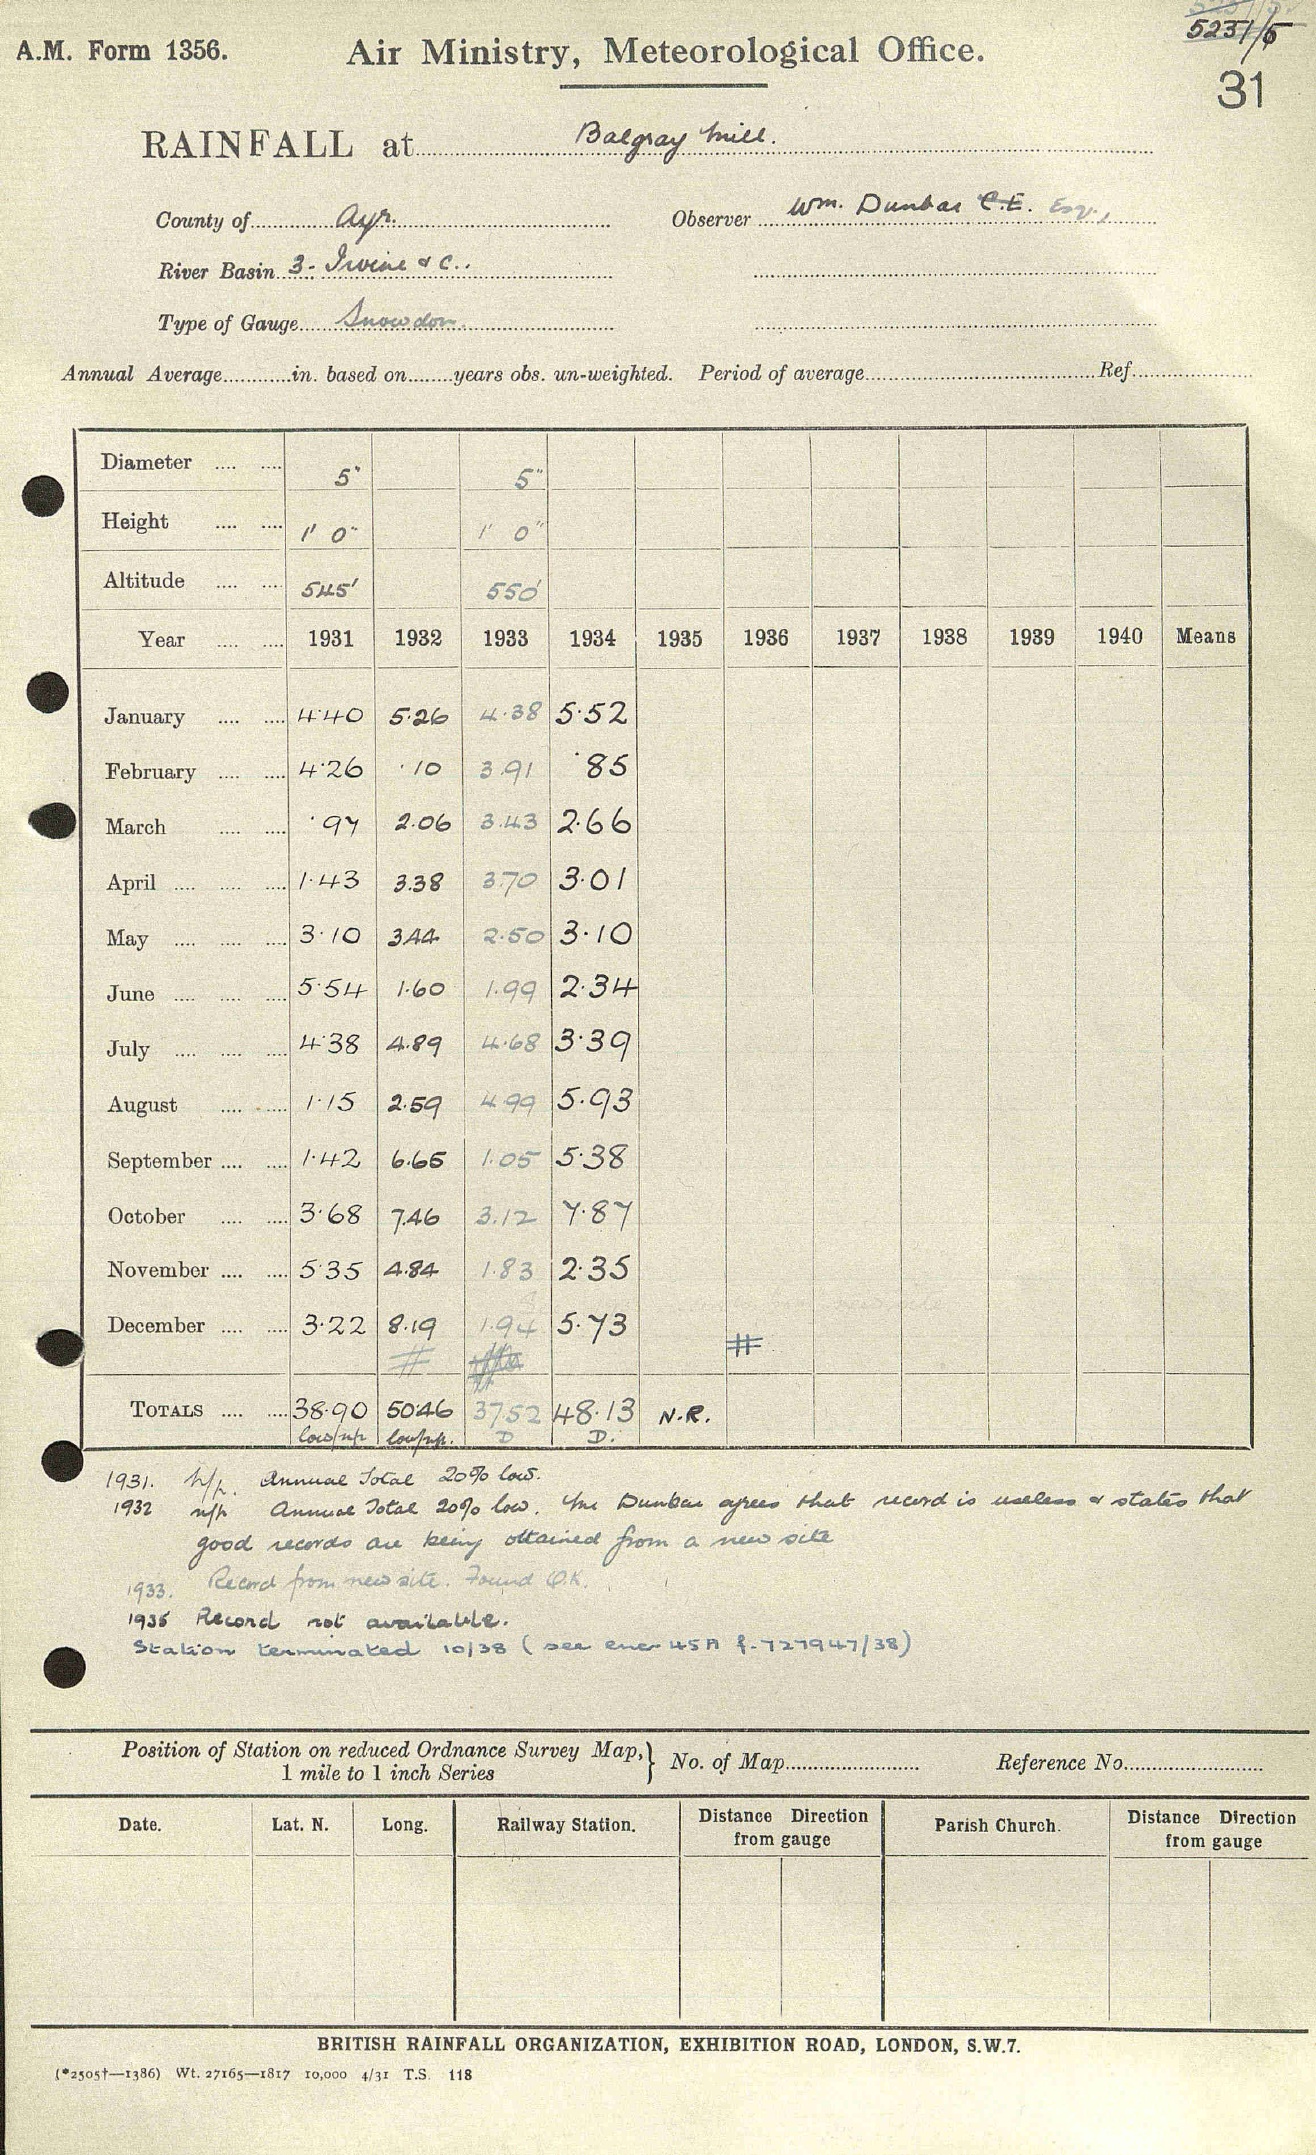 5231/5
A.M. Form 1356. Air Ministry, Meteorological Office.
31
RAINFALL at Balgray Mill.
County of Ayr. Observer Wm. Dunbar C.E. Esq.,
River Basin 3. Irvine & C..
Type of Gauge Snowdon.
Annual Average in. based on years obs. un-weighted. Period of average Ref.
Diameter 5" 5"
Height 1' 0" 1' 0"
Altitude 545' 550'
Year 1931 1932 1933 1934 1935 1936 1937 1938 1939 1940 Means
January 4.40 5.26 4.38 5.52
February 4.26 .10 3.91 .85
March .97 2.06 3.43 2.66
April 1.43 3.38 3.70 3.01
May 3.10 3.44 2.50 3.10
June 5.54 1.60 1.99 2.34
July 4.38 4.89 4.68 3.39
August 1.15 2.59 4.99 5.93
September 1.42 6.65 1.05 5.38
October 3.68 7.46 3.12 7.87
November 5.35 4.84 1.83 2.35
December 3.22 8.19 1.94 5.73
TOTALS 38.90 50.46 37.52 48.13 N.R.
low/n/p low/n/p. D D.
1931. n/p. Annual Total 20% low.
1932 n/p Annual Total 20% low. Mr Dunbar agrees that record is useless & states that
good records are being obtained from a new site
1933. Record from new site. Found O.K.
1935 Record not available.
Station terminated 10/38 (see encr 45A f. 727947/38)
Position of Station on reduced Ordnance Survey Map,} No. of Map Reference No.
1 mile to 1 inch Series
Date. Lat. N. Long. Railway Station. Distance Direction Parish Church. Distance Direction
from gauge from gauge
BRITISH RAINFALL ORGANIZATION, EXHIBITION ROAD, LONDON, S.W.7.
(*2505†—1386) Wt. 27165—1817 10,000 4/31 T.S. 118